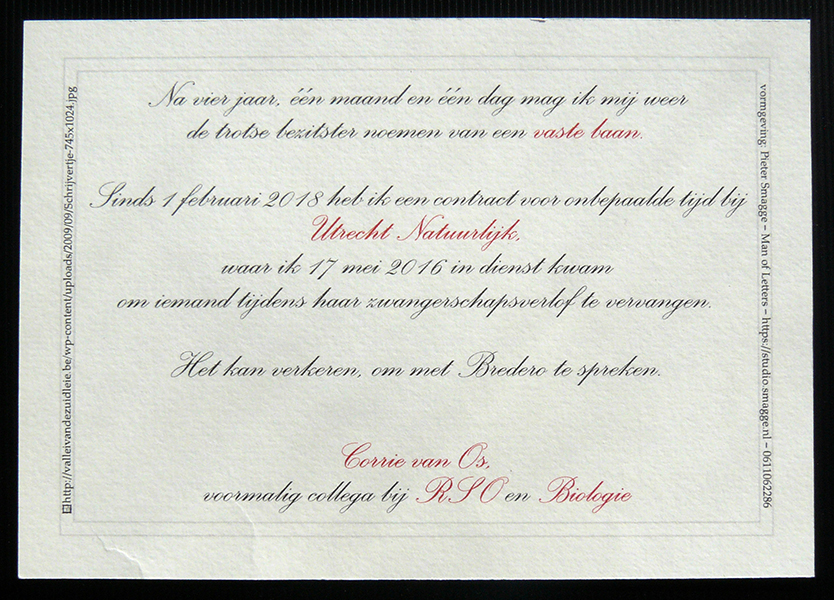 Na vier jaar, één maand en één dag mag ik mij weer
de trotse bezitster noemen van een vaste baan.
Sinds 1 februari 2018 heb ik een contract voor onbepaalde tijd bij
Utrecht Natuurlijk,
waar ik 17 mei 2016 in dienst kwam
om iemand tijdens haar zwangerschapsverlof te vervangen.
Het kan verkeren, om met Bredero te spreken.
Corrie van Os,
voormalig collega bij RSO en Biologie
http://valleivandezuidleie.be/wp-content/uploads/2009/09/Schrijvertje-745x1024.jpg
vormgeving: Pieter Smagge – Man of Letters – https://studio.smagge.nl – 0611062286